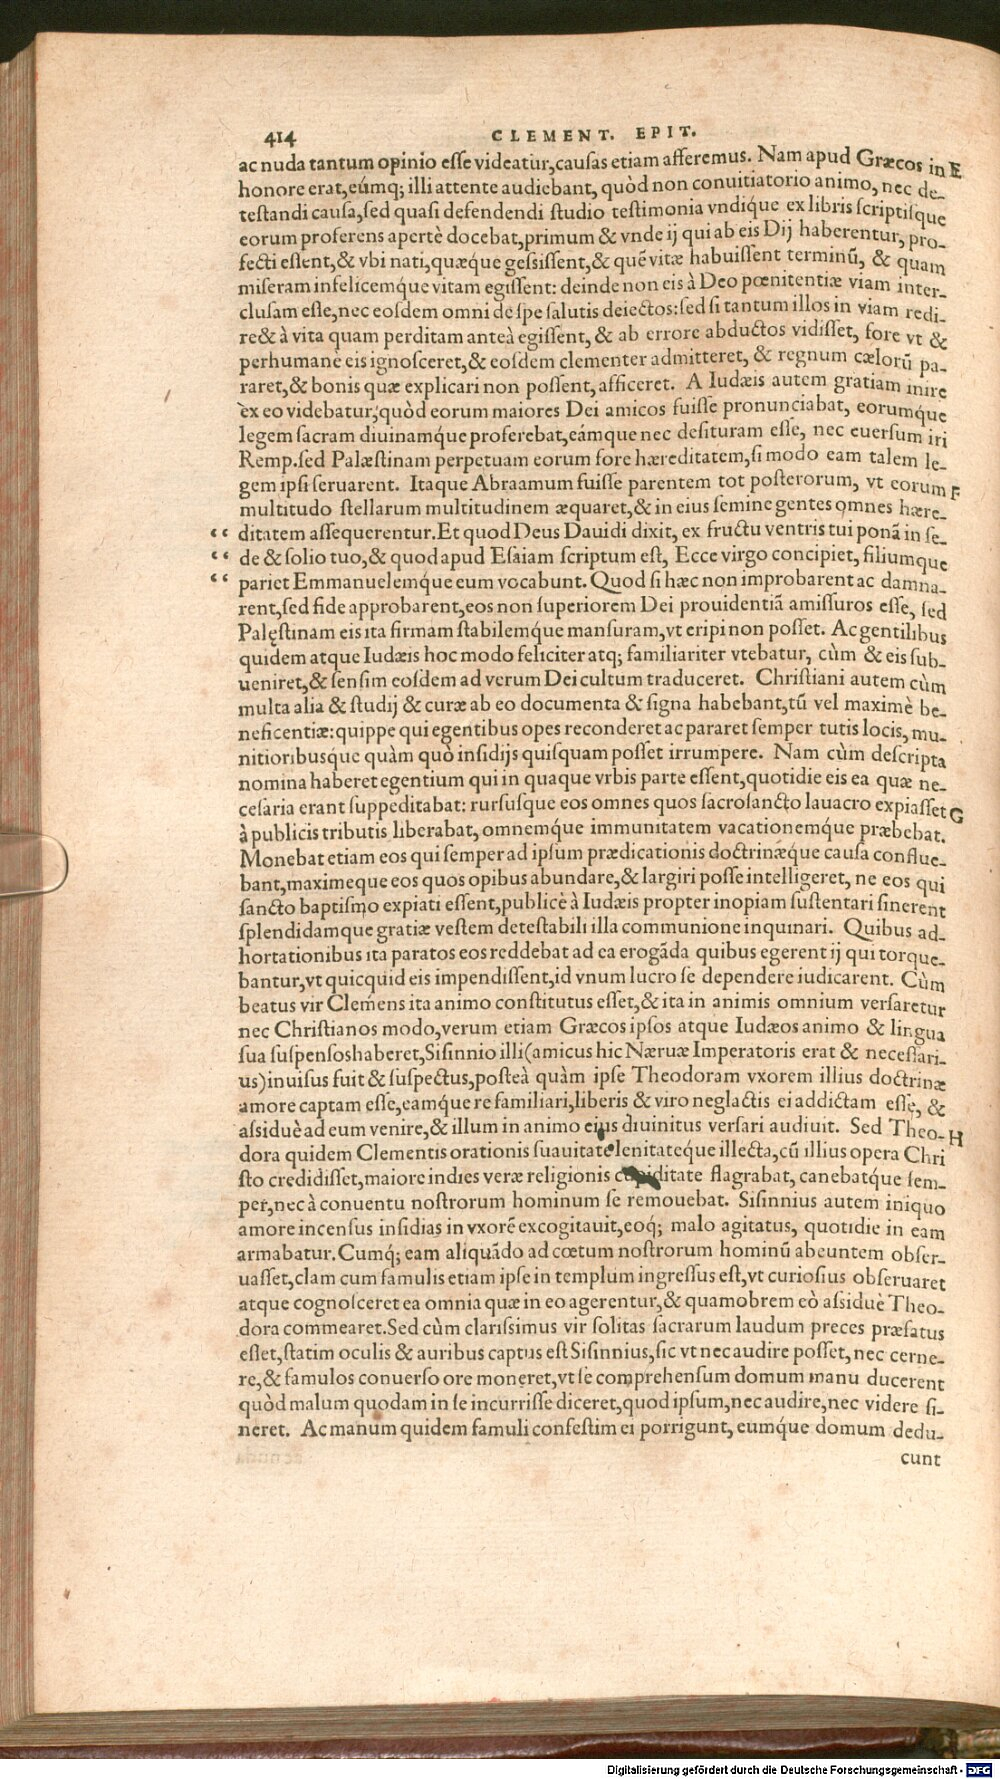 414 CLEMENT. EPIT.
ac nuda tantum opinio esse videatur, causas etiam afferemus. Nam apud Græcos in E
honore erat, eúmq; illi attente audiebant, quòd non conuitiatorio animo, nec de-
testandi causa, sed quasi defendendi studio testimonia vndíque ex libris scriptísque
eorum proferens apertè docebat, primum & vnde ij qui ab eis Dij haberentur, pro-
fecti essent, & vbi nati, quæque gessissent, & quē vitæ habuissent terminū, & quam
miseram infelicemque vitam egissent: deinde non eis à Deo pœnitentiæ viam inter-
clusam esse, nec eosdem omni de spe salutis deiectos: sed si tantum illos in viam redi-
re & à vita quam perditam anteà egissent, & ab errore abductos vidisset, fore vt &
perhumane eis ignosceret, & eosdem clementer admitteret, & regnum cælorū pa-
raret, & bonis quæ explicari non possent, afficeret. A Iudæis autem gratiam inire
ex eo videbatur, quòd eorum maiores Dei amicos fuisse pronunciabat, eorumque
legem sacram diuinamque proferebat, eámque nec desituram esse, nec euersum iri
Remp. sed Palæstinam perpetuam eorum fore hæreditatem, si modo eam talem le-
gem ipsi seruarent. Itaque Abraamum fuisse parentem tot posterorum, vt eorum F
multitudo stellarum multitudinem æquaret, & in eius semine gentes omnes hære-
“ ditatem assequerentur. Et quod Deus Dauidi dixit, ex fructu ventris tui ponā in se-
“ de & solio tuo, & quod apud Esaiam scriptum est, Ecce virgo concipiet, filiumque
“ pariet Emmanuelemque eum vocabunt. Quod si hæc non improbarent ac damna-
rent, sed fide approbarent, eos non superiorem Dei prouidentiā amissuros esse, sed
Palęstinam eis ita firmam stabilemque mansuram, vt eripi non posset. Ac gentilibus
quidem atque Iudæis hoc modo feliciter atq; familiariter vtebatur, cùm & eis sub-
ueniret, & sensim eosdem ad verum Dei cultum traduceret. Christiani autem cùm
multa alia & studij & curæ ab eo documenta & signa habebant, tū vel maximè be-
neficentiæ: quippe qui egentibus opes reconderet ac pararet semper tutis locis, mu-
nitioribusque quàm quò insidijs quisquam posset irrumpere. Nam cùm descripta
nomina haberet egentium qui in quaque vrbis parte essent, quotidie eis ea quæ ne-
cesaria erant suppeditabat: rursusque eos omnes quos sacrosancto lauacro expiasset G
à publicis tributis liberabat, omnemque immunitatem vacationemque præbebat.
Monebat etiam eos qui semper ad ipsum prædicationis doctrinæque causa conflue-
bant, maximeque eos quos opibus abundare, & largiri posse intelligeret, ne eos qui
sancto baptismo expiati essent, publicè à Iudæis propter inopiam sustentari sinerent
splendidamque gratiæ vestem detestabili illa communione inquinari. Quibus ad-
hortationibus ita paratos eos reddebat ad ea erogāda quibus egerent ij qui torque-
bantur, vt quicquid eis impendissent, id vnum lucro se dependere iudicarent. Cùm
beatus vir Clemens ita animo constitutus esset, & ita in animis omnium versaretur
nec Christianos modo, verum etiam Græcos ipsos atque Iudæos animo & lingua
sua suspensos haberet, Sisinnio illi (amicus hic Næruæ Imperatoris erat & necessari-
us) inuisus fuit & suspectus, posteà quàm ipse Theodoram vxorem illius doctrinæ
amore captam esse, eamque re familiari, liberis & viro neglactis ei addictam esse, &
assiduè ad eum venire, & illum in animo eius diuinitus versari audiuit. Sed Theo- H
dora quidem Clementis orationis suauitate lenitateque illecta, cū illius opera Chri
sto credidisset, maiore indies veræ religionis cupiditate flagrabat, canebatque sem-
per, nec à conuentu nostrorum hominum se remouebat. Sisinnius autem iniquo
amore incensus insidias in vxorē excogitauit, eoq; malo agitatus, quotidie in eam
armabatur. Cumq; eam aliquādo ad cœtum nostrorum hominū abeuntem obser-
uasset, clam cum famulis etiam ipse in templum ingressus est, vt curiosius obseruaret
atque cognosceret ea omnia quæ in eo agerentur, & quamobrem eò assiduè Theo-
dora commearet. Sed cùm clarissimus vir solitas sacrarum laudum preces præfatus
esset, statim oculis & auribus captus est Sisinnius, sic vt nec audire posset, nec cerne-
re, & famulos conuerso ore moneret, vt se comprehensum domum manu ducerent
quòd malum quodam in se incurrisse diceret, quod ipsum, nec audire, nec videre si-
neret. Ac manum quidem famuli confestim ei porrigunt, eumque domum dedu-
cunt
Digitalisierung gefördert durch die Deutsche Forschungsgemeinschaft - DFG